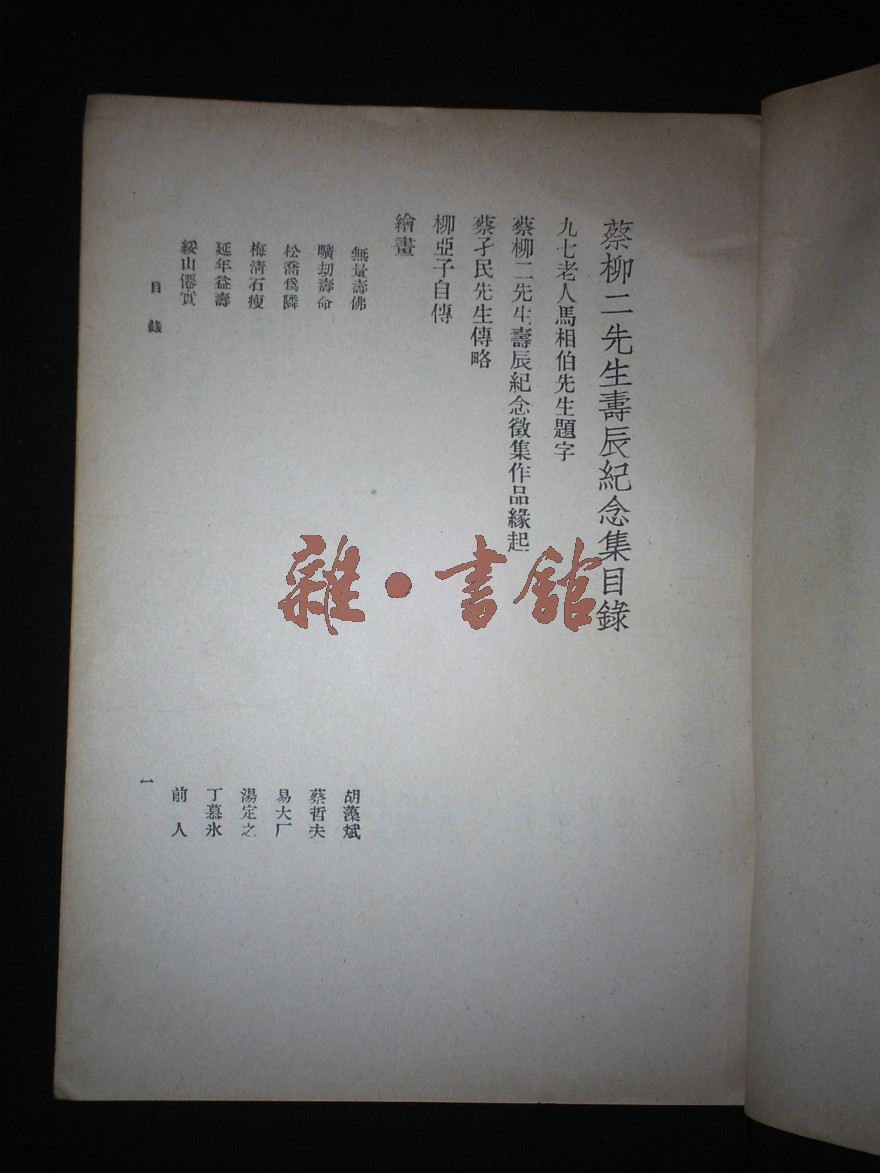 蔡柳二先生壽辰紀念集目錄
九七老人馬相伯先生題字
蔡柳二先生壽辰紀念徵集作品緣起
蔡孑民先生傳略
柳亞子自傳
繪畫
無量壽佛 胡藻斌
曠劫壽命 蔡哲夫
松喬爲隣 易大厂
梅淸石瘦 湯定之
延年益壽 丁慕氷
綏山僊實 前人
目錄 一
雜·書館